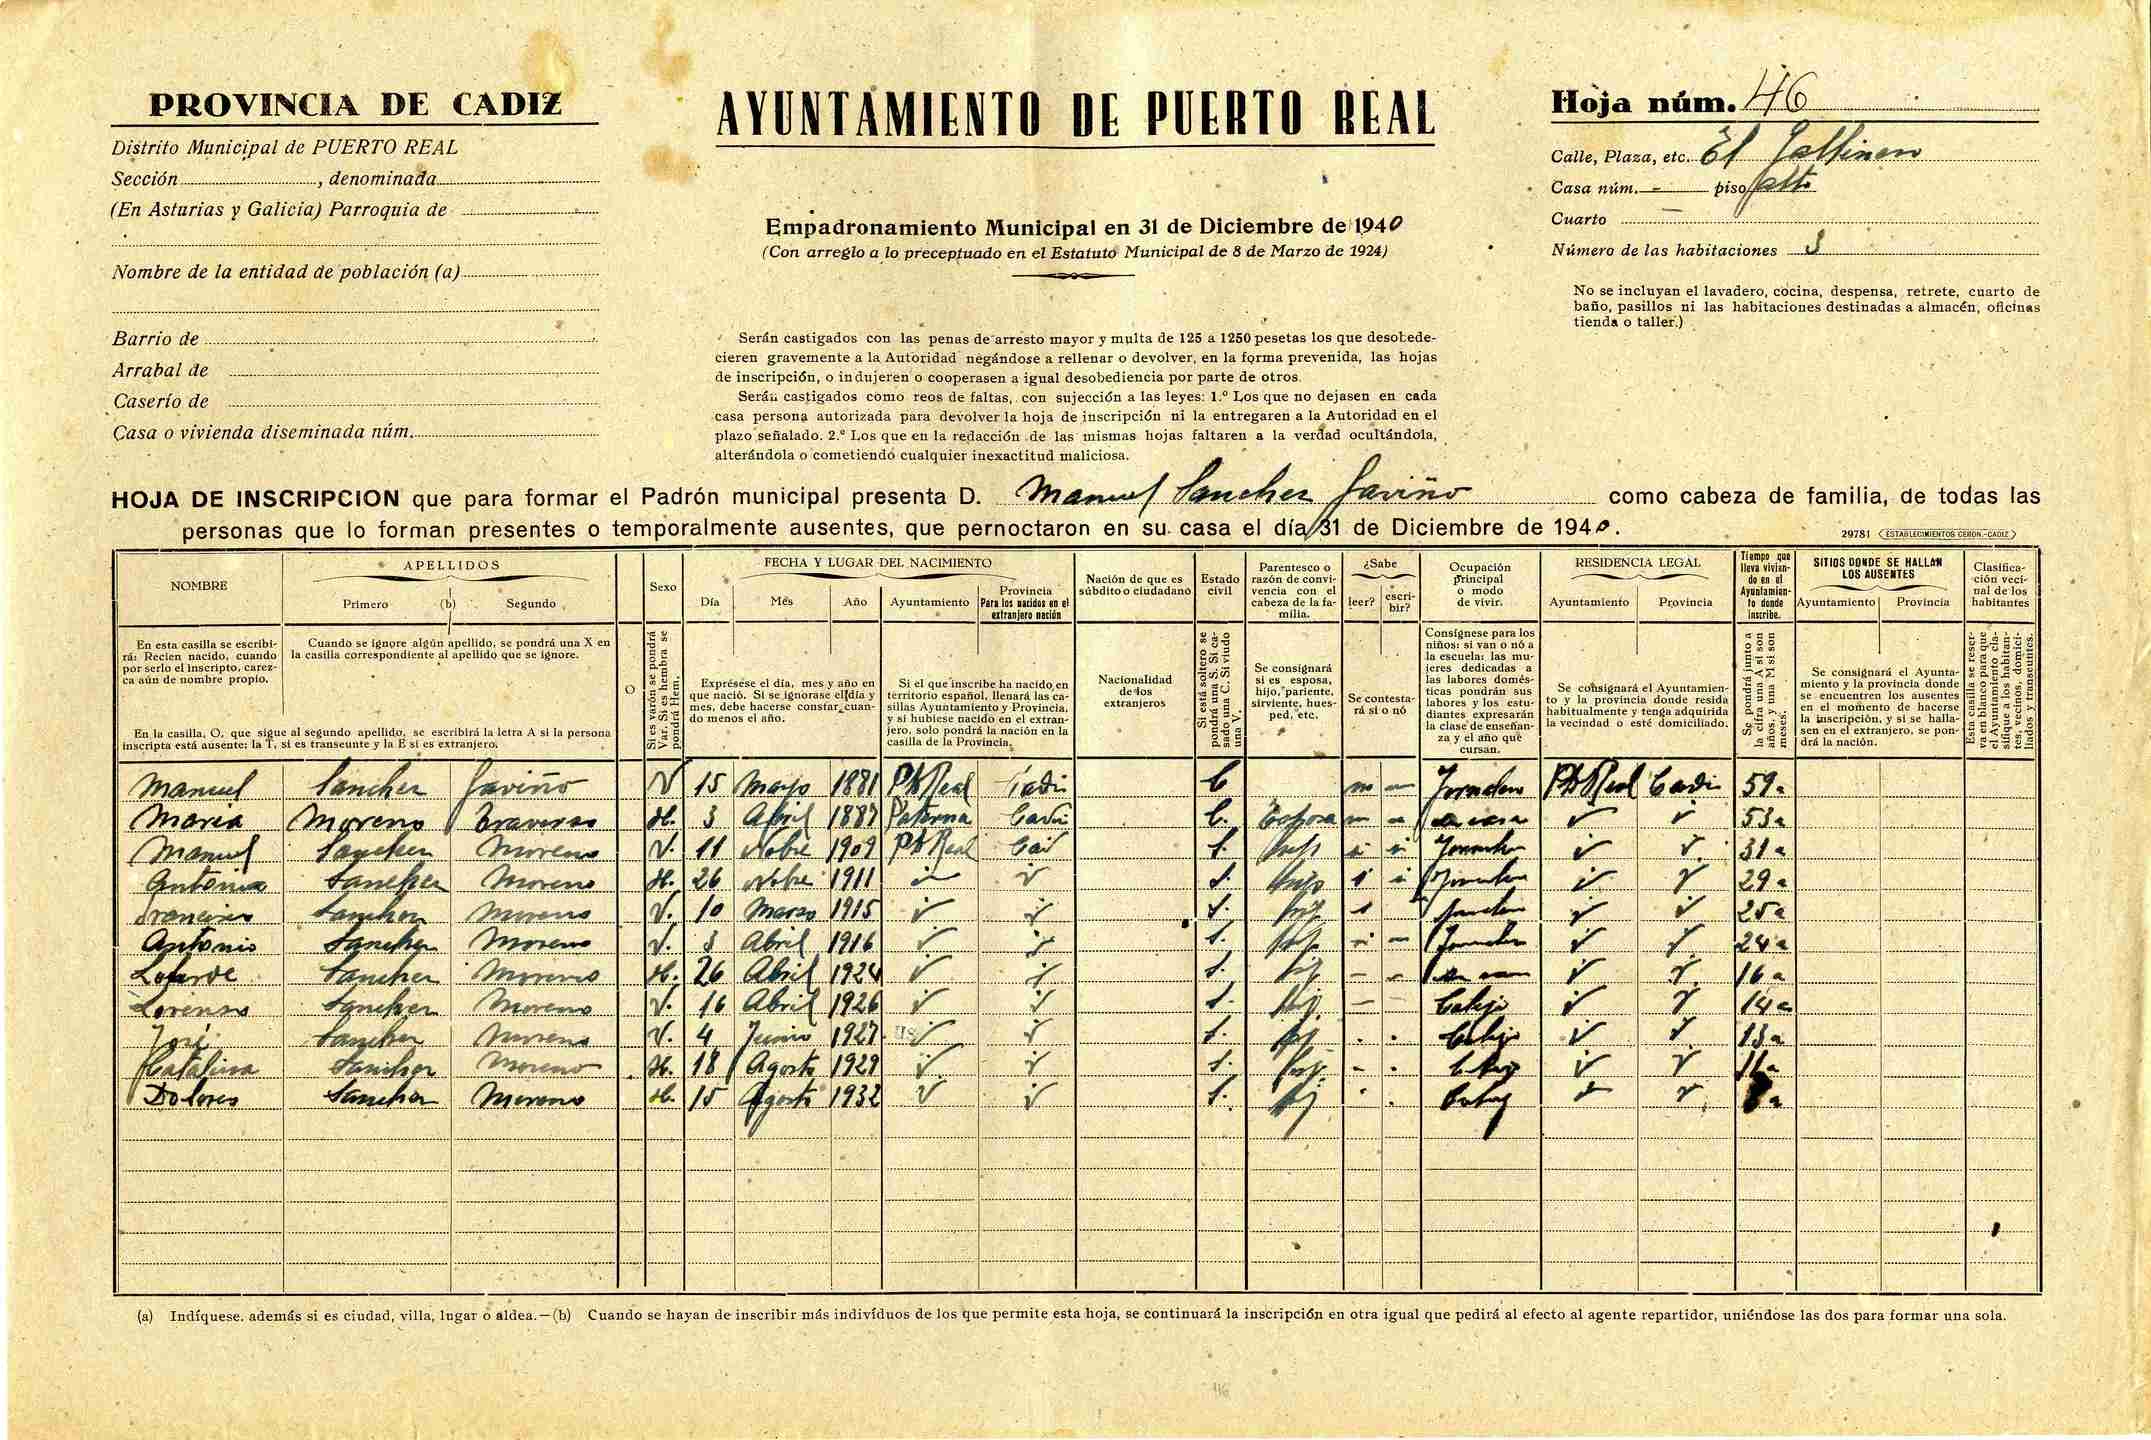 PROVINCIA DE CADIZ
Distrito Municipal de PUERTO REAL
Sección , denominada
(En Asturias y Galicia) Parroquia de
Nombre de la entidad de población (a)
Barrio de
Arrabal de
Caserío de
Casa o vivienda diseminada núm.
AYUNTAMIENTO DE PUERTO REAL
Empadronamiento Municipal en 31 de Diciembre de 1940
(Con arreglo a lo preceptuado en el Estatuto Municipal de 8 de Marzo de 1924)
Serán castigados con las penas de arresto mayor y multa de 125 a 1250 pesetas los que desobede-
cieren gravemente a la Autoridad negándose a rellenar o devolver, en la forma prevenida, las hojas
de inscripción, o indujeren o cooperasen a igual desobediencia por parte de otros.
Serán castigados como reos de faltas, con sujección a las leyes: 1.º Los que no dejasen en cada
casa persona autorizada para devolver la hoja de inscripción ni la entregaren a la Autoridad en el
plazo señalado. 2.º Los que en la redacción de las mismas hojas faltaren a la verdad ocultándola,
alterándola o cometiendo cualquier inexactitud maliciosa.
Hoja núm. 46
Calle, Plaza, etc. El Gallinero
Casa núm. - piso alto
Cuarto -
Número de las habitaciones 3
No se incluyan el lavadero, cocina, despensa, retrete, cuarto de
baño, pasillos ni las habitaciones destinadas a almacén, oficinas
tienda o taller.)
HOJA DE INSCRIPCION que para formar el Padrón municipal presenta D. Manuel Sanchez Gaviño como cabeza de familia, de todas las
personas que lo forman presentes o temporalmente ausentes, que pernoctaron en su casa el día 31 de Diciembre de 1940.
29781 ESTABLECIMIENTOS CERON.-CADIZ
NOMBRE
APELLIDOS
Primero (b) Segundo
Sexo
FECHA Y LUGAR DEL NACIMIENTO
Día Mes Año Ayuntamiento
Provincia
Para los nacidos en el
extranjero nación
Nación de que es
súbdito o ciudadano
Estado
civil
Parentesco o
razón de convi-
vencia con el
cabeza de la fa-
milia.
¿Sabe
leer? escri-
bir?
Ocupación
principal
o modo
de vivir.
RESIDENCIA LEGAL
Ayuntamiento Provincia
Tiempo que
lleva vivien-
do en el
Ayuntamien-
to donde
inscribe.
SITIOS DONDE SE HALLAN
LOS AUSENTES
Ayuntamiento Provincia
Clasifica-
ción veci-
nal de los
habitantes
En esta casilla se escribi-
rá: Recien nacido, cuando
por serlo el inscripto, carez-
ca aún de nombre propio.
Cuando se ignore algún apellido, se pondrá una X en
la casilla correspondiente al apellido que se ignore.
En la casilla, O. que sigue al segundo apellido, se escribirá la letra A si la persona
inscripta está ausente: la T, si es transeunte y la E si es extranjero.
O
Si es varón se pondrá
Var. Si es hembra se
pondrá Hem.
Exprésese el día, mes y año en
que nació. Si se ignorase el día y
mes, debe hacerse constar cuan-
do menos el año.
Si el que inscribe ha nacido en
territorio español, llenará las ca-
sillas Ayuntamiento y Provincia,
y si hubiese nacido en el extran-
jero, solo pondrá la nación en la
casilla de la Provincia.
Nacionalidad
de los
extranjeros
Si está soltero se
pondrá una S. Si ca-
sado una C. Si viudo
una V.
Se consignará
si es esposa,
hijo, pariente,
sirviente, hues-
ped, etc.
Se contesta-
rá si o nó
Consígnese para los
niños: si van o nó a
la escuela: las mu-
jeres dedicadas a
las labores domés-
ticas pondrán sus
labores y los estu-
diantes expresarán
la clase de enseñan-
za y el año que
cursan.
Se consignará el Ayuntamien-
to y la provincia donde resida
habitualmente y tenga adquirida
la vecindad o esté domiciliado.
Se pondrá junto a
la cifra una A si son
años, y una M si son
meses.
Se consignará el Ayunta-
miento y la provincia donde
se encuentren los ausentes
en el momento de hacerse
la inscripción, y si se halla-
sen en el extranjero, se pon-
drá la nación.
Esta casilla se reser-
va en blanco para que
el Ayuntamiento cla-
sifique a los habitan-
tes, vecinos, domici-
liados y transeuntes.
Manuel Sanchez Gaviño V 15 Mayo 1881 Pto Real Cadiz C Jornalero Pto Real Cadiz 59a
Maria Moreno H. 3 Abril 1887 Paterna Cadiz C. Esposa su casa 53a
Manuel Sanchez Moreno V. 11 Nobre 1909 Pto Real Cadi S. hijo si si Jornalero 31a
Antonia Sanchez Moreno H. 26 1911 S. hijo 29a
Francisco Sanchez Moreno V. 10 Marzo 1915 S. hijo Jornalero 25a
Antonio Sanchez Moreno V. 3 Abril 1916 S. hijo Jornalero 24a
Sanchez Moreno H. 26 Abril 1924 S. hij su casa 16a
Lorenzo Sanchez Moreno V. 16 Abril 1926 S. hij. Colejio 14a
José Sanchez Moreno V. 4 Junio 1927 S. hij Colejio 13a
Catalina Sanchez Moreno H. 18 Agosto 1929 S. hij. 11a
Dolores Sanchez Moreno H. 15 Agosto 1932 S. hij 8a
(a) Indíquese. además si es ciudad, villa, lugar o aldea.—(b) Cuando se hayan de inscribir más indivíduos de los que permite esta hoja, se continuará la inscripción en otra igual que pedirá al efecto al agente repartidor, uniéndose las dos para formar una sola.
46